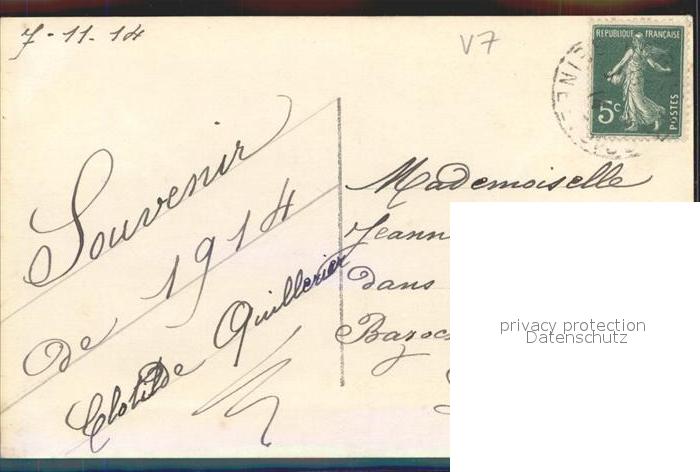 7-11.14
V7
REPUBLIQUE FRANÇAISE
5c
POSTES
Souvenir
de 1914
Clotilde Quillerier
Mademoiselle
Jeann
dans
Baroc
privacy protection
Datenschutz